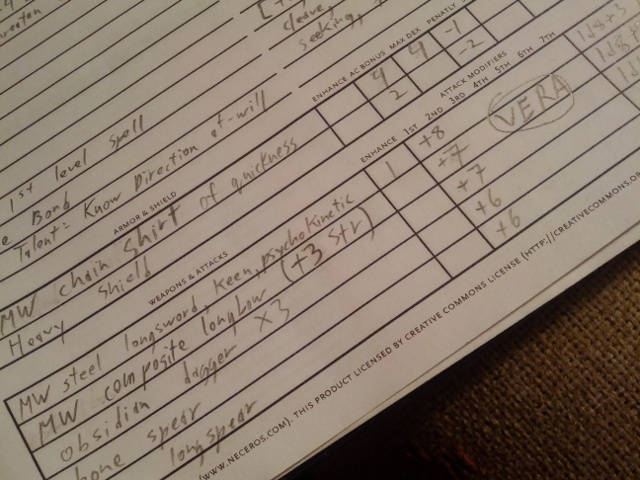 cleave,
seeking,
1st level spell
Bond
Talent: Know Direction at-will
ARMOR & SHIELD
ENHANCE AC BONUS MAX DEX PENALTY
MW chain shirt of quickness 4 4 -1
Heavy shield 2 -2
WEAPONS & ATTACKS
ENHANCE 1ST 2ND 3RD 4TH 5TH 6TH 7TH
ATTACK MODIFIERS
MW steel longsword, keen, psychokinetic 1 +8 1d8+3
MW composite longbow (+3 str) +7 1d8
obsidian dagger x3 +7
bone spear +6
longspear +6
VERA
(WWW.NECEROS.COM). THIS PRODUCT LICENSED BY CREATIVE COMMONS LICENSE (HTTP://CREATIVECOMMONS.OR